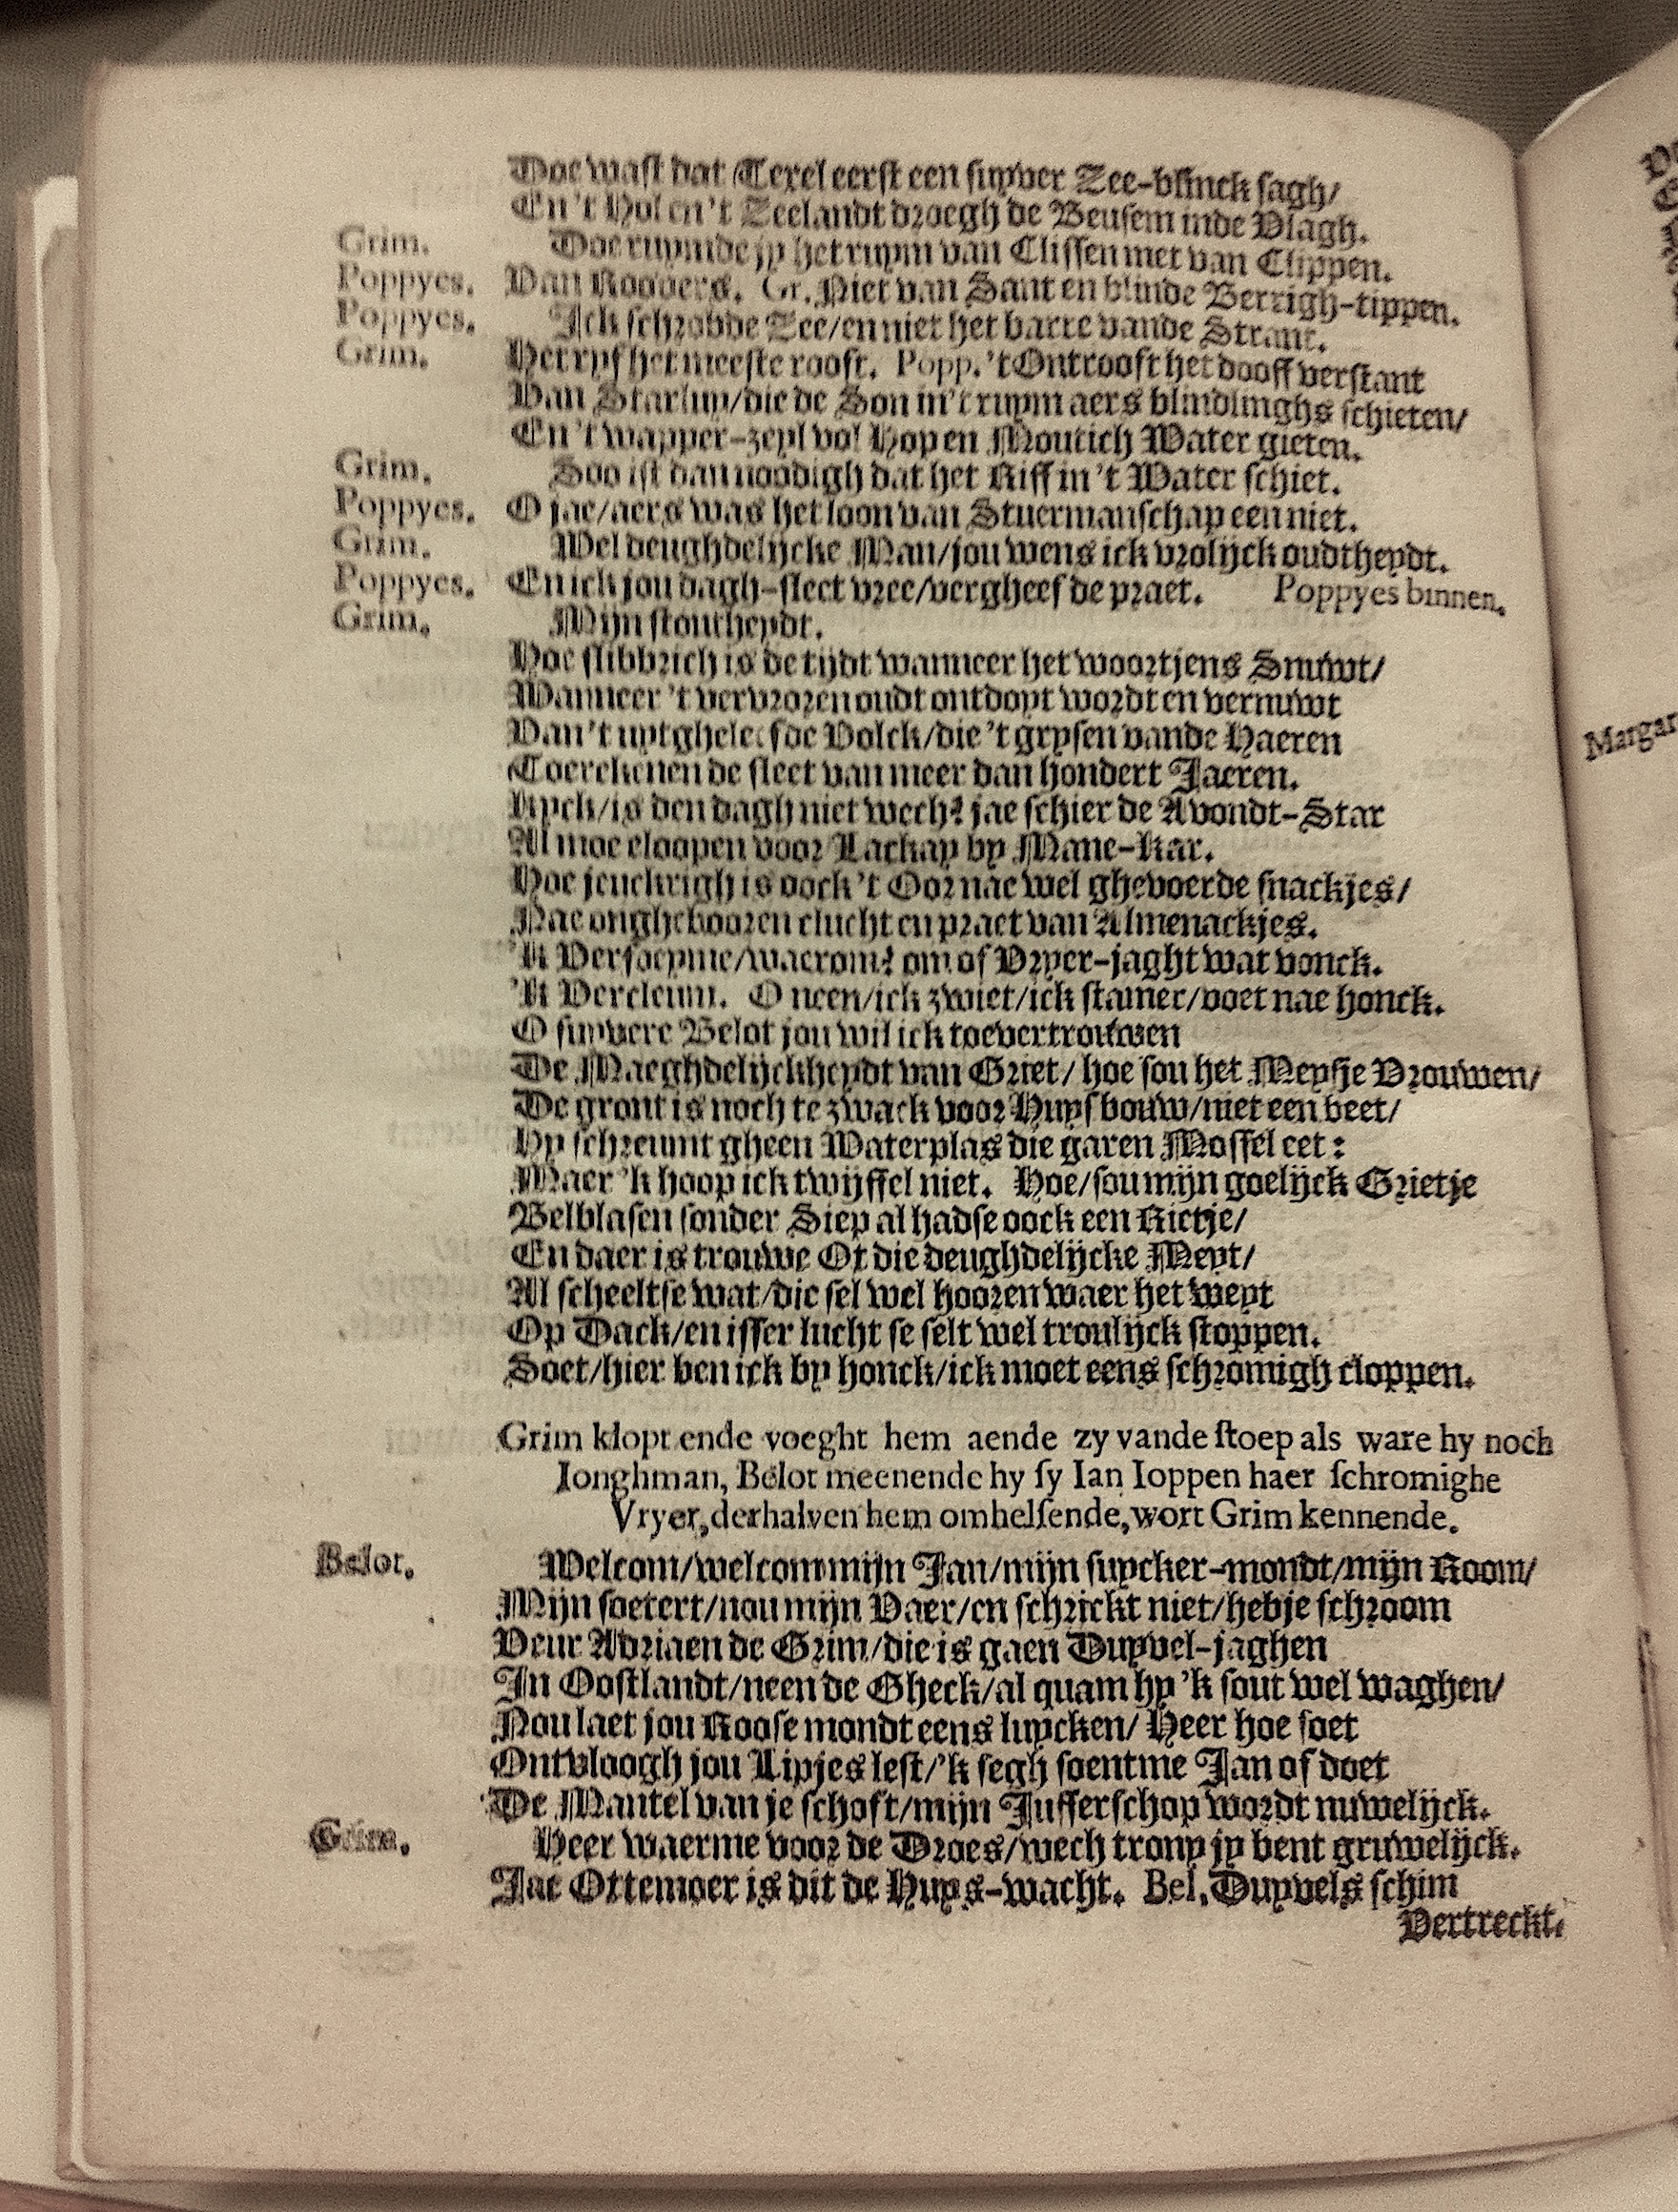 Doe wast dat Texel eerst een suyver Zee-blinck sagh/
En 't Hol en 't Zeelandt droegh de Beusem inde Vlagh.
Grim. Doe ruymde jy het ruym van Clissen met van Clippen.
Poppyes. Van Roovers. Gr. Niet van Sant en blinde Berrigh-tippen.
Poppyes. Ick schrobde Zee/en niet het barre vande Strant.
Grim. Het ryf het meeste rooft. Popp. 't Ontrooft het dooff verstant
Van Starluy/die de Son in't ruym aers blindlinghs schieten/
En 't wapper-zeyl vol Hop en Moutich Water gieten.
Grim. Soo ist dan noodigh dat het Riff in 't Water schiet.
Poppyes. O jae/aers was het loon van Stuermanschap een niet.
Grim. Wel deughdelijcke Man/jou wens ick vrolijck oudtheydt.
Poppyes. En ick jou dagh-sleet vree/vergheef de praet. Poppyes binnen.
Grim. Mijn stoutheydt.
Hoe slibbrich is de tijdt wanneer het woortjens Snuwt/
Wanneer 't vervrozen oudt ontdoyt wordt en vernuwt
Van 't uytgheleefde Volck/die 't grysen vande Haeren
Toereckenen de sleet van meer dan hondert Jaeren.
Kyck/is den dagh niet wech? jae schier de Avondt-Star
Al moe eloopen voor Lackay by Mane-Kar.
Hoe jeuckrigh is oock 't Oor nae wel ghevoerde snackjes/
Nae onghebooren clucht en praet van Almenackjes.
'K Versoeyme/waerom? om of Vryer-jaght wat vonck.
'K Vercleun. O neen/ick zwiet/ick stamer/voet nae honck.
O suyvere Belot jou wil ick toevertrouwen
De Maeghdelijckheydt van Griet/ hoe sou het Meysje Vrouwen/
De gront is noch te zwack voor Huysbouw/niet een beet/
Hy schreumt gheen Waterplas die garen Mossel eet:
Maer 'k hoop ick twijffel niet. Hoe/sou mijn goelijck Grietje
Belblasen sonder Siep al hadse oock een Rietje/
En daer is trouwe Ot die deughdelijcke Meyt/
Al scheeltse wat/die sel wel hooren waer het weyt
Op Dack/en isser lucht se selt wel troulijck stoppen.
Soet/hier ben ick by honck/ick moet eens schromigh cloppen.
Grim klopt ende voeght hem aende zy vande stoep als ware hy noch
Ionghman, Belot meenende hy sy Ian Ioppen haer schromighe
Vryer, derhalven hem omhelsende, wort Grim kennende.
Belot. Welcom/welcom mijn Jan/mijn suycker-mondt/mijn Room/
Mijn soetert/nou mijn Vaer/en schrickt niet/hebje schroom
Veur Adriaen de Grim/die is gaen Duyvel-jaghen
In Oostlandt/neen de Gheck/al quam hy 'k sout wel waghen/
Nou laet jou Roose mondt eens luycken/ Heer hoe soet
Ontvloogh jou Lipjes lest/'k segh soentme Jan of doet
De Mantel van je schoft/mijn Jufferschop wordt nuwelijck.
Grim. Heer waerme voor de Droes/wech trony jy bent gruwelijck.
Jae Ottemoer is dit de Huys-wacht. Bel. Duyvels schim
Vertreckt.
Margar